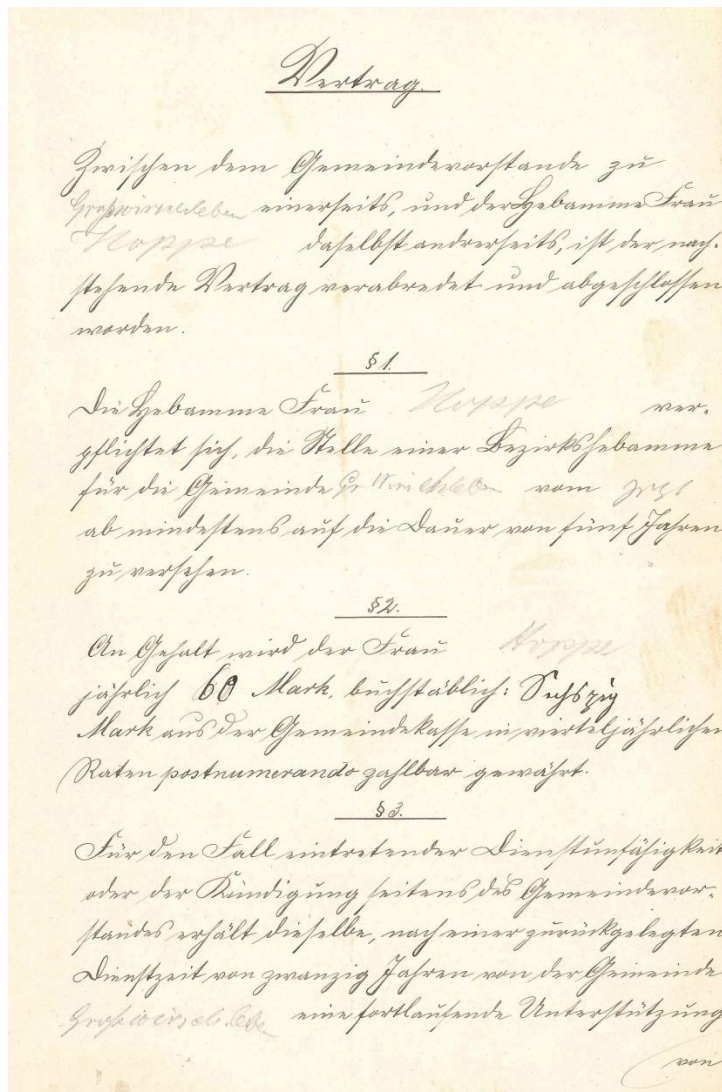 Vertrag.
Zwischen dem Gemeindevorstande zu
Großwirschleben einerseits, und der Hebamme Frau
Hoppe daselbst andrerseits, ist der nach-
stehende Vertrag verabredet und abgeschlossen
worden.
§ 1.
Die Hebamme Frau Hoppe ver-
pflichtet sich, die Stelle einer Bezirkshebamme
für die Gemeinde Gr Wirschleben vom
ab mindestens auf die Dauer von fünf Jahren
zu versehen.
§ 2.
An Gehalt wird der Frau Hoppe
jährlich 60 Mark, buchstäblich: Sechszig
Mark aus der Gemeindekasse in vierteljährlichen
Raten postnumerando zahlbar gewährt.
§ 3.
Für den Fall eintretender Dienstunfähigkeit
oder der Kündigung seitens des Gemeindevor-
standes erhält dieselbe, nach einer zurückgelegten
Dienstzeit von zwanzig Jahren von der Gemeinde
Großwirschleben eine fortlaufende Unterstützung
von